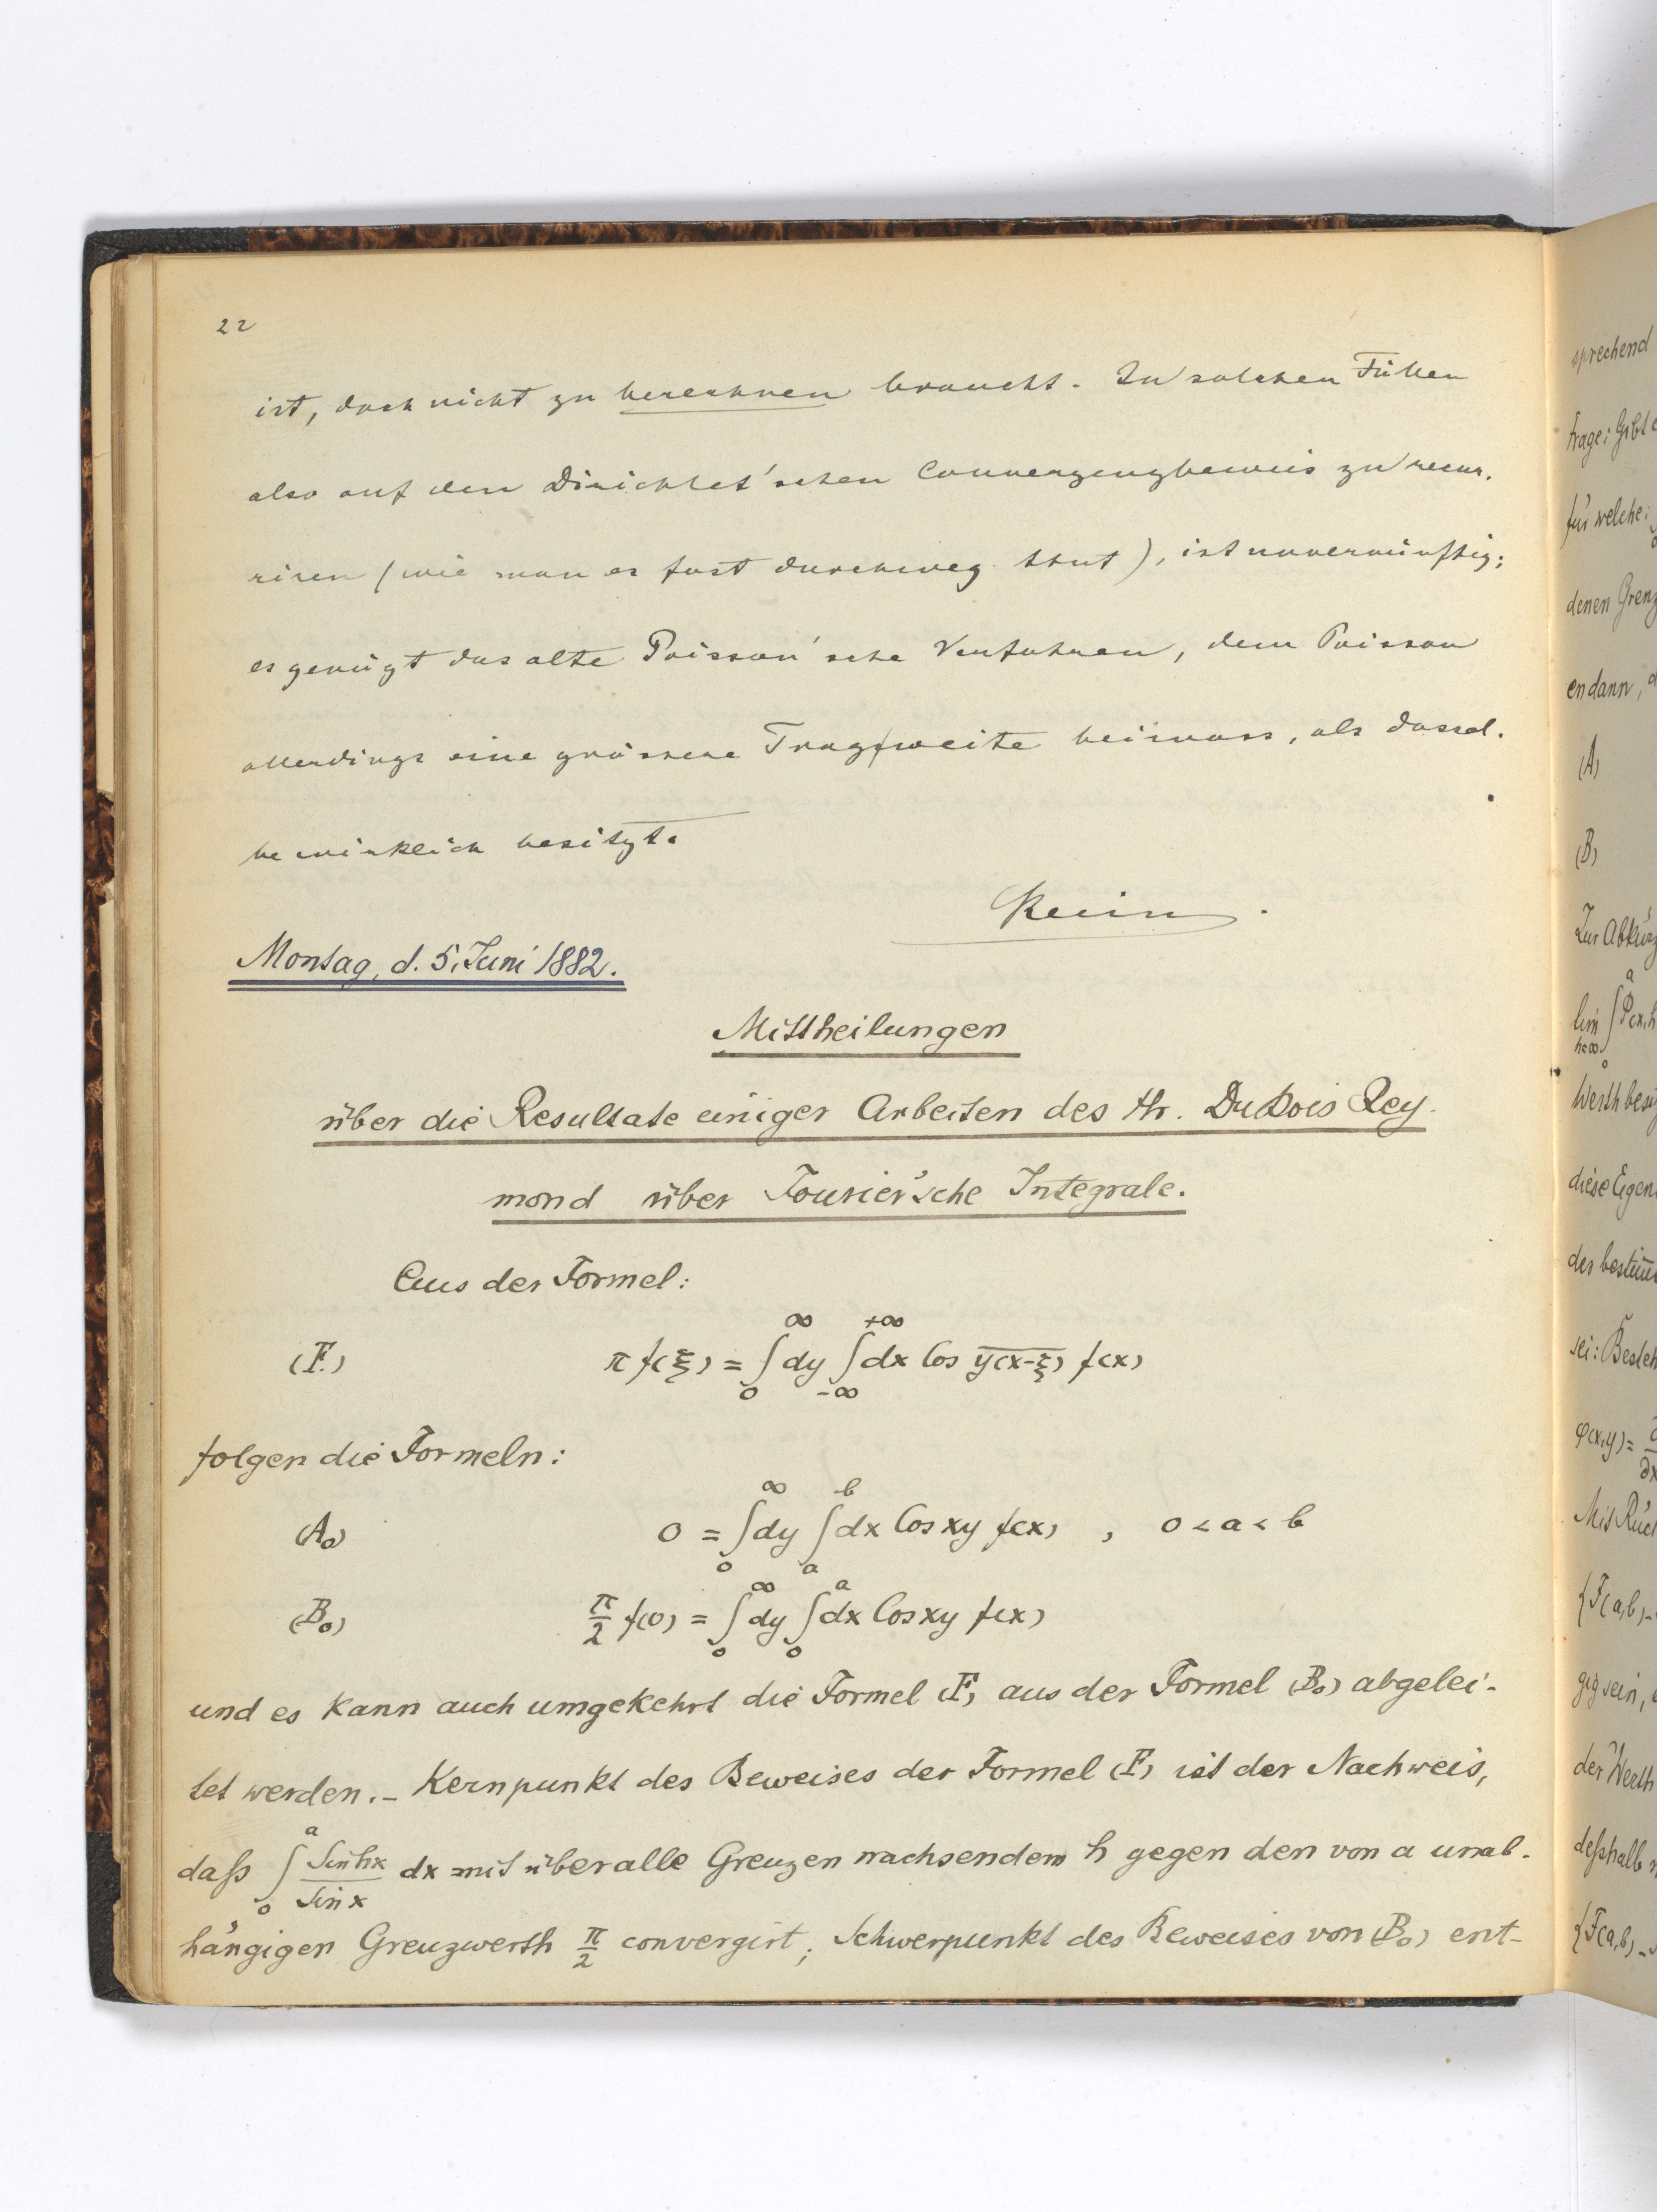 22
ist, doch nicht zu berechnen braucht. In solchen Fällen
also auf den Dirichlet'schen Convergenzbeweis zu recur.
riren (wie man es fast durchweg thut), ist unvernünftig;
es genügt das alte Poisson'sche Verfahren, dem Poisson
allerdings eine grössere Tragweite beimass, als dassel.
be wirklich besitzt.
Montag, d. 5. Juni 1882.
Mittheilungen
über die Resultate einiger Arbeiten des Hr. Du Bois Rey.
mond über Fourier'sche Integrale.
Aus der Formel:
(F.) π f(ξ) = ∫₀^∞ dy ∫₋∞^+∞ dx Cos y(x-ξ) f(x)
folgen die Formeln:
(A₀) 0 = ∫₀^∞ dy ∫ₐ^b dx Cos xy f(x) , 0 < a < b
(B₀) π/2 f(0) = ∫₀^∞ dy ∫₀^a dx Cos xy f(x)
und es kann auch umgekehrt die Formel (F) aus der Formel (B₀) abgelei-
tet werden. – Kernpunkt des Beweises der Formel (F) ist der Nachweis,
daß ∫₀^a Sin hx / Sin x dx mit über alle Grenzen wachsendem h gegen den von a unab-
hängigen Grenzwerth π/2 convergirt; Schwerpunkt des Beweises von (B₀) ent-
sprechend
frage: Gibt e
für welche:
denen Grenz
en dann, d
(A)
(B)
Zur Abkürz
lim ∫₀^a Φ(x,h
h=∞
Werth besi
diese Eigen
der bestim̄
sei: Besteh
φ(x,y) = ∂
∂x
Mit Rück
{F(a,b) –
gig sein,
der Werth
deßhalb
{F(a,b) –